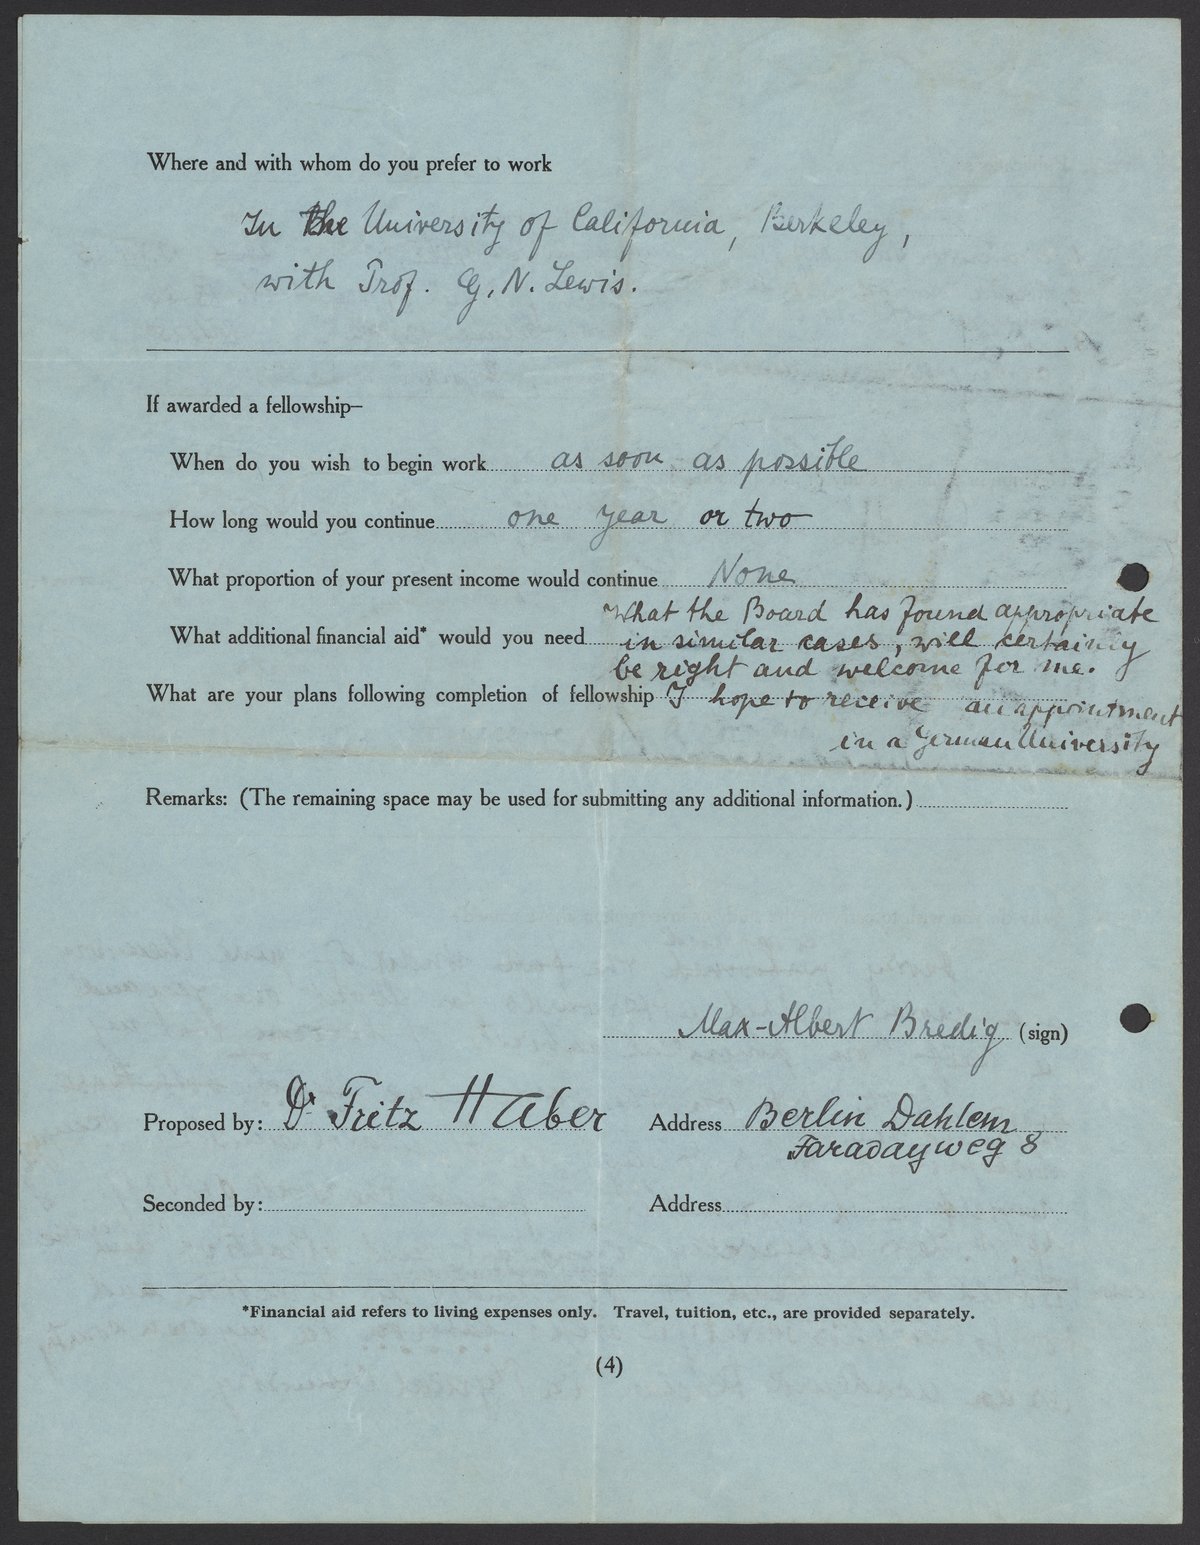 Where and with whom do you prefer to work
In the University of California, Berkeley,
with Prof. G. N. Lewis.
If awarded a fellowship—
When do you wish to begin work as soon as possible
How long would you continue one year or two
What proportion of your present income would continue None
What the Board has found appropriate
What additional financial aid* would you need in similar cases, will certainly
be right and welcome for me.
What are your plans following completion of fellowship I hope to receive an appointment
in a German University
Remarks: (The remaining space may be used for submitting any additional information.)
Max-Albert Bredig (sign)
Proposed by: Dr Fritz Haber Address Berlin Dahlem
Faradayweg 8
Seconded by: Address
*Financial aid refers to living expenses only. Travel, tuition, etc., are provided separately.
(4)